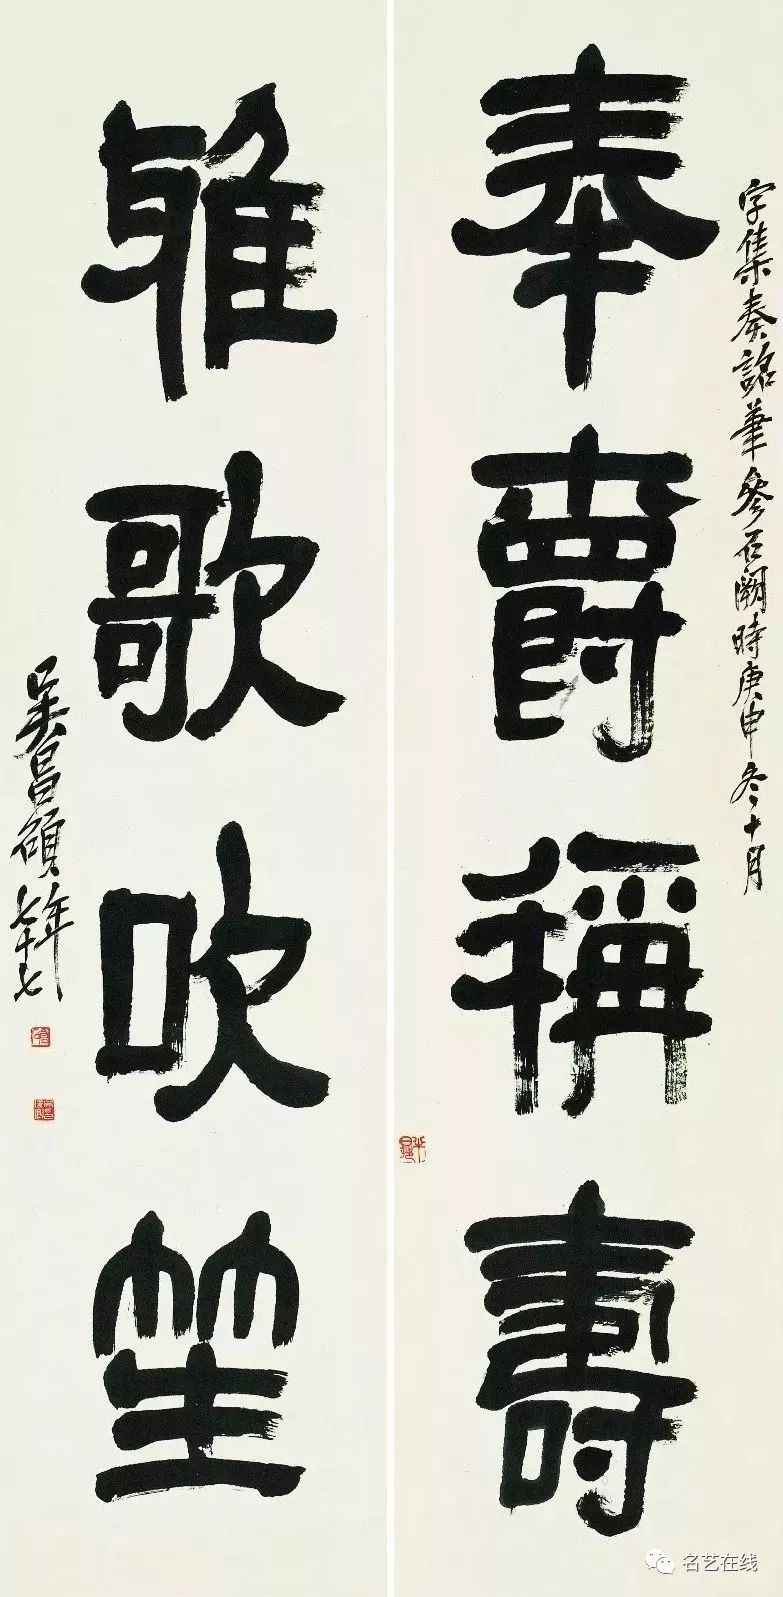 字集秦詔筆參石闕時庚申冬十月
奉爵稱壽
雅歌吹笙
吳昌碩年七十七
名艺在线